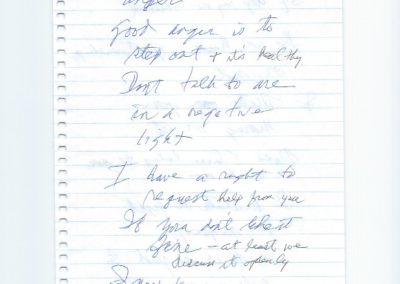 anger
Good anger is to
step out + it's healthy
Don't talk to me
in a negative
light
I have a right to
request help from you
If you don't like it
fine – at least we
discuss it openly